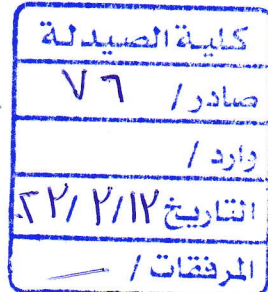 كلية الصيدلة
صادر / ٧٦
وارد /
التاريخ ١٢ / ٢ / ٢٢
المرفقات / ــــ